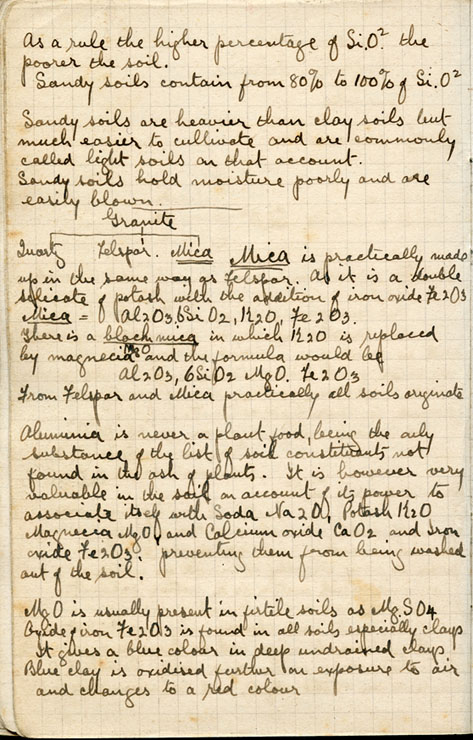 As a rule the higher percentage of Si.O² the
poorer the soil.
Sandy soils contain from 80% to 100% of Si.O²
Sandy soils are heavier than clay soils but
much easier to cultivate and are commonly
called light soils on that account.
Sandy soils hold moisture poorly and are
easily blown.
Granite
Quartz Felspar. Mica Mica is practically made
up in the same way as Felspar. As it is a double
silicate of potash with the addition of iron oxide Fe2O3
Mica = Al2O3, 6SiO2, K2O, Fe2O3.
There is a black mica in which K2O is replaced
by magnecia MgO and the formula would be
Al2O3, 6SiO2 MgO. Fe2O3
From Felspar and Mica practically all soils originate
Aluminia is never a plant food, being the only
substance of the list of soil constituents not
found in the ash of plants. It is however very
valuable in the soil on account of its power to
associate itself with Soda Na2O, Potash K2O
Magnecia MgO, and Calcium oxide CaO2 and Iron
oxide Fe2O3. preventing them from being washed
out of the soil.
MgO is usually present in firtile soils as Mg.SO4
Oxide of iron Fe2O3 is found in all soils especially clays
It gives a blue colour in deep undrained clays
Blue clay is oxidised further on exposure to air
and changes to a red colour